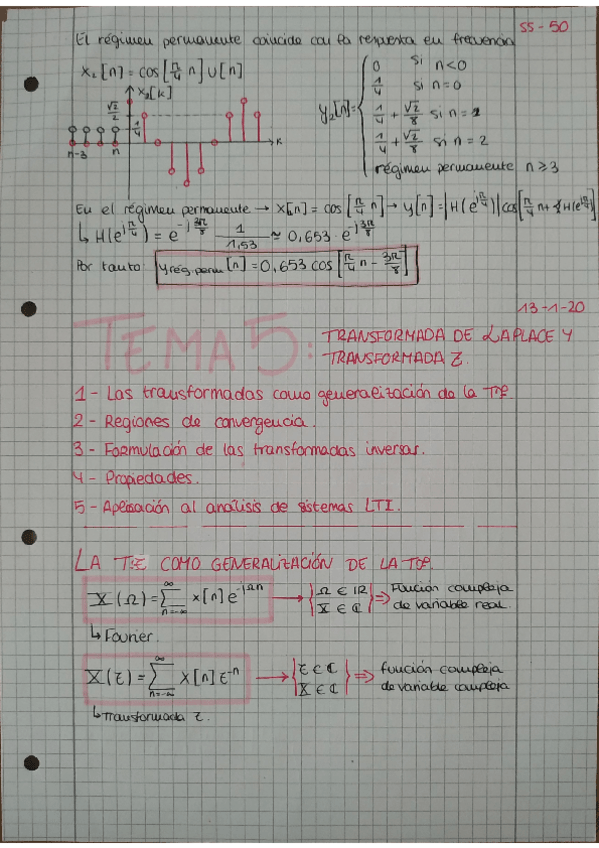 SS-50
El régimen permanente coincide con la respuesta en frecuencia
x₂[n] = cos[π/4 n] u[n]
x₂[k]
√2/2
1/4
n-3 n K
y₂[n] = { 0 si n<0
1/4 si n=0
1/4 + √2/8 si n=1
1/4 + √2/8 si n=2
régimen permanente n≥3
En el régimen permanente → x[n] = cos[π/4 n] → y[n] = |H(e^{jπ/4})| cos[π/4 n + ∢H(e^{jπ/4})]
↳ H(e^{jπ/4}) = e^{-j3π/8} 1/1,53 ≈ 0,653 · e^{-j3π/8}
Por tanto: y rég. perm [n] = 0,653 cos[π/4 n - 3π/8]
13-1-20
TEMA 5: TRANSFORMADA DE LAPLACE Y
TRANSFORMADA Z.
1- Las transformadas como generalización de la TF
2- Regiones de convergencia.
3- Formulación de las transformadas inversas.
4- Propiedades.
5- Aplicación al análisis de sistemas LTI.
LA TZ COMO GENERALIZACIÓN DE LA TF.
X(Ω) = Σ_{n=-∞}^{∞} x[n] e^{-jΩn} → { Ω ∈ ℝ X ∈ ℂ } ⇒ Función compleja
de variable real.
↳ Fourier.
X(z) = Σ_{n=-∞}^{∞} x[n] z^{-n} → { z ∈ ℂ X ∈ ℂ } ⇒ función compleja
de variable compleja
↳ Transformada z.